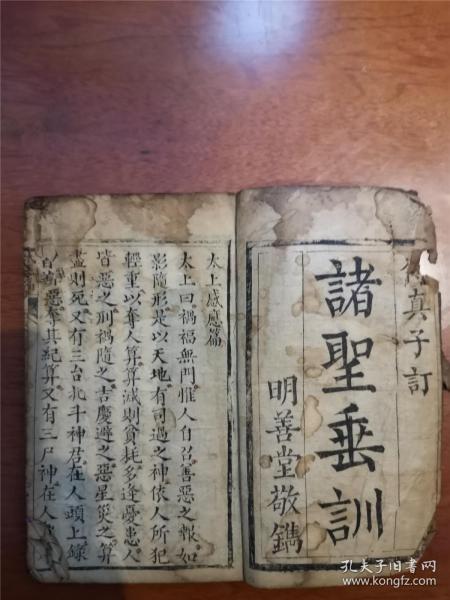 真子訂
諸聖垂訓
明善堂敬鐫
太上感應篇
太上曰禍福無門惟人自召善惡之報如
影隨形是以天地有司過之神依人所犯
輕重以奪人算算減則貧耗多逢憂患人
皆惡之刑禍隨之吉慶避之惡星災之算
盡則死又有三台北斗神君在人頭上錄
人罪惡奪其紀算又有三尸神在人
孔夫子旧书网
www.kongfz.com